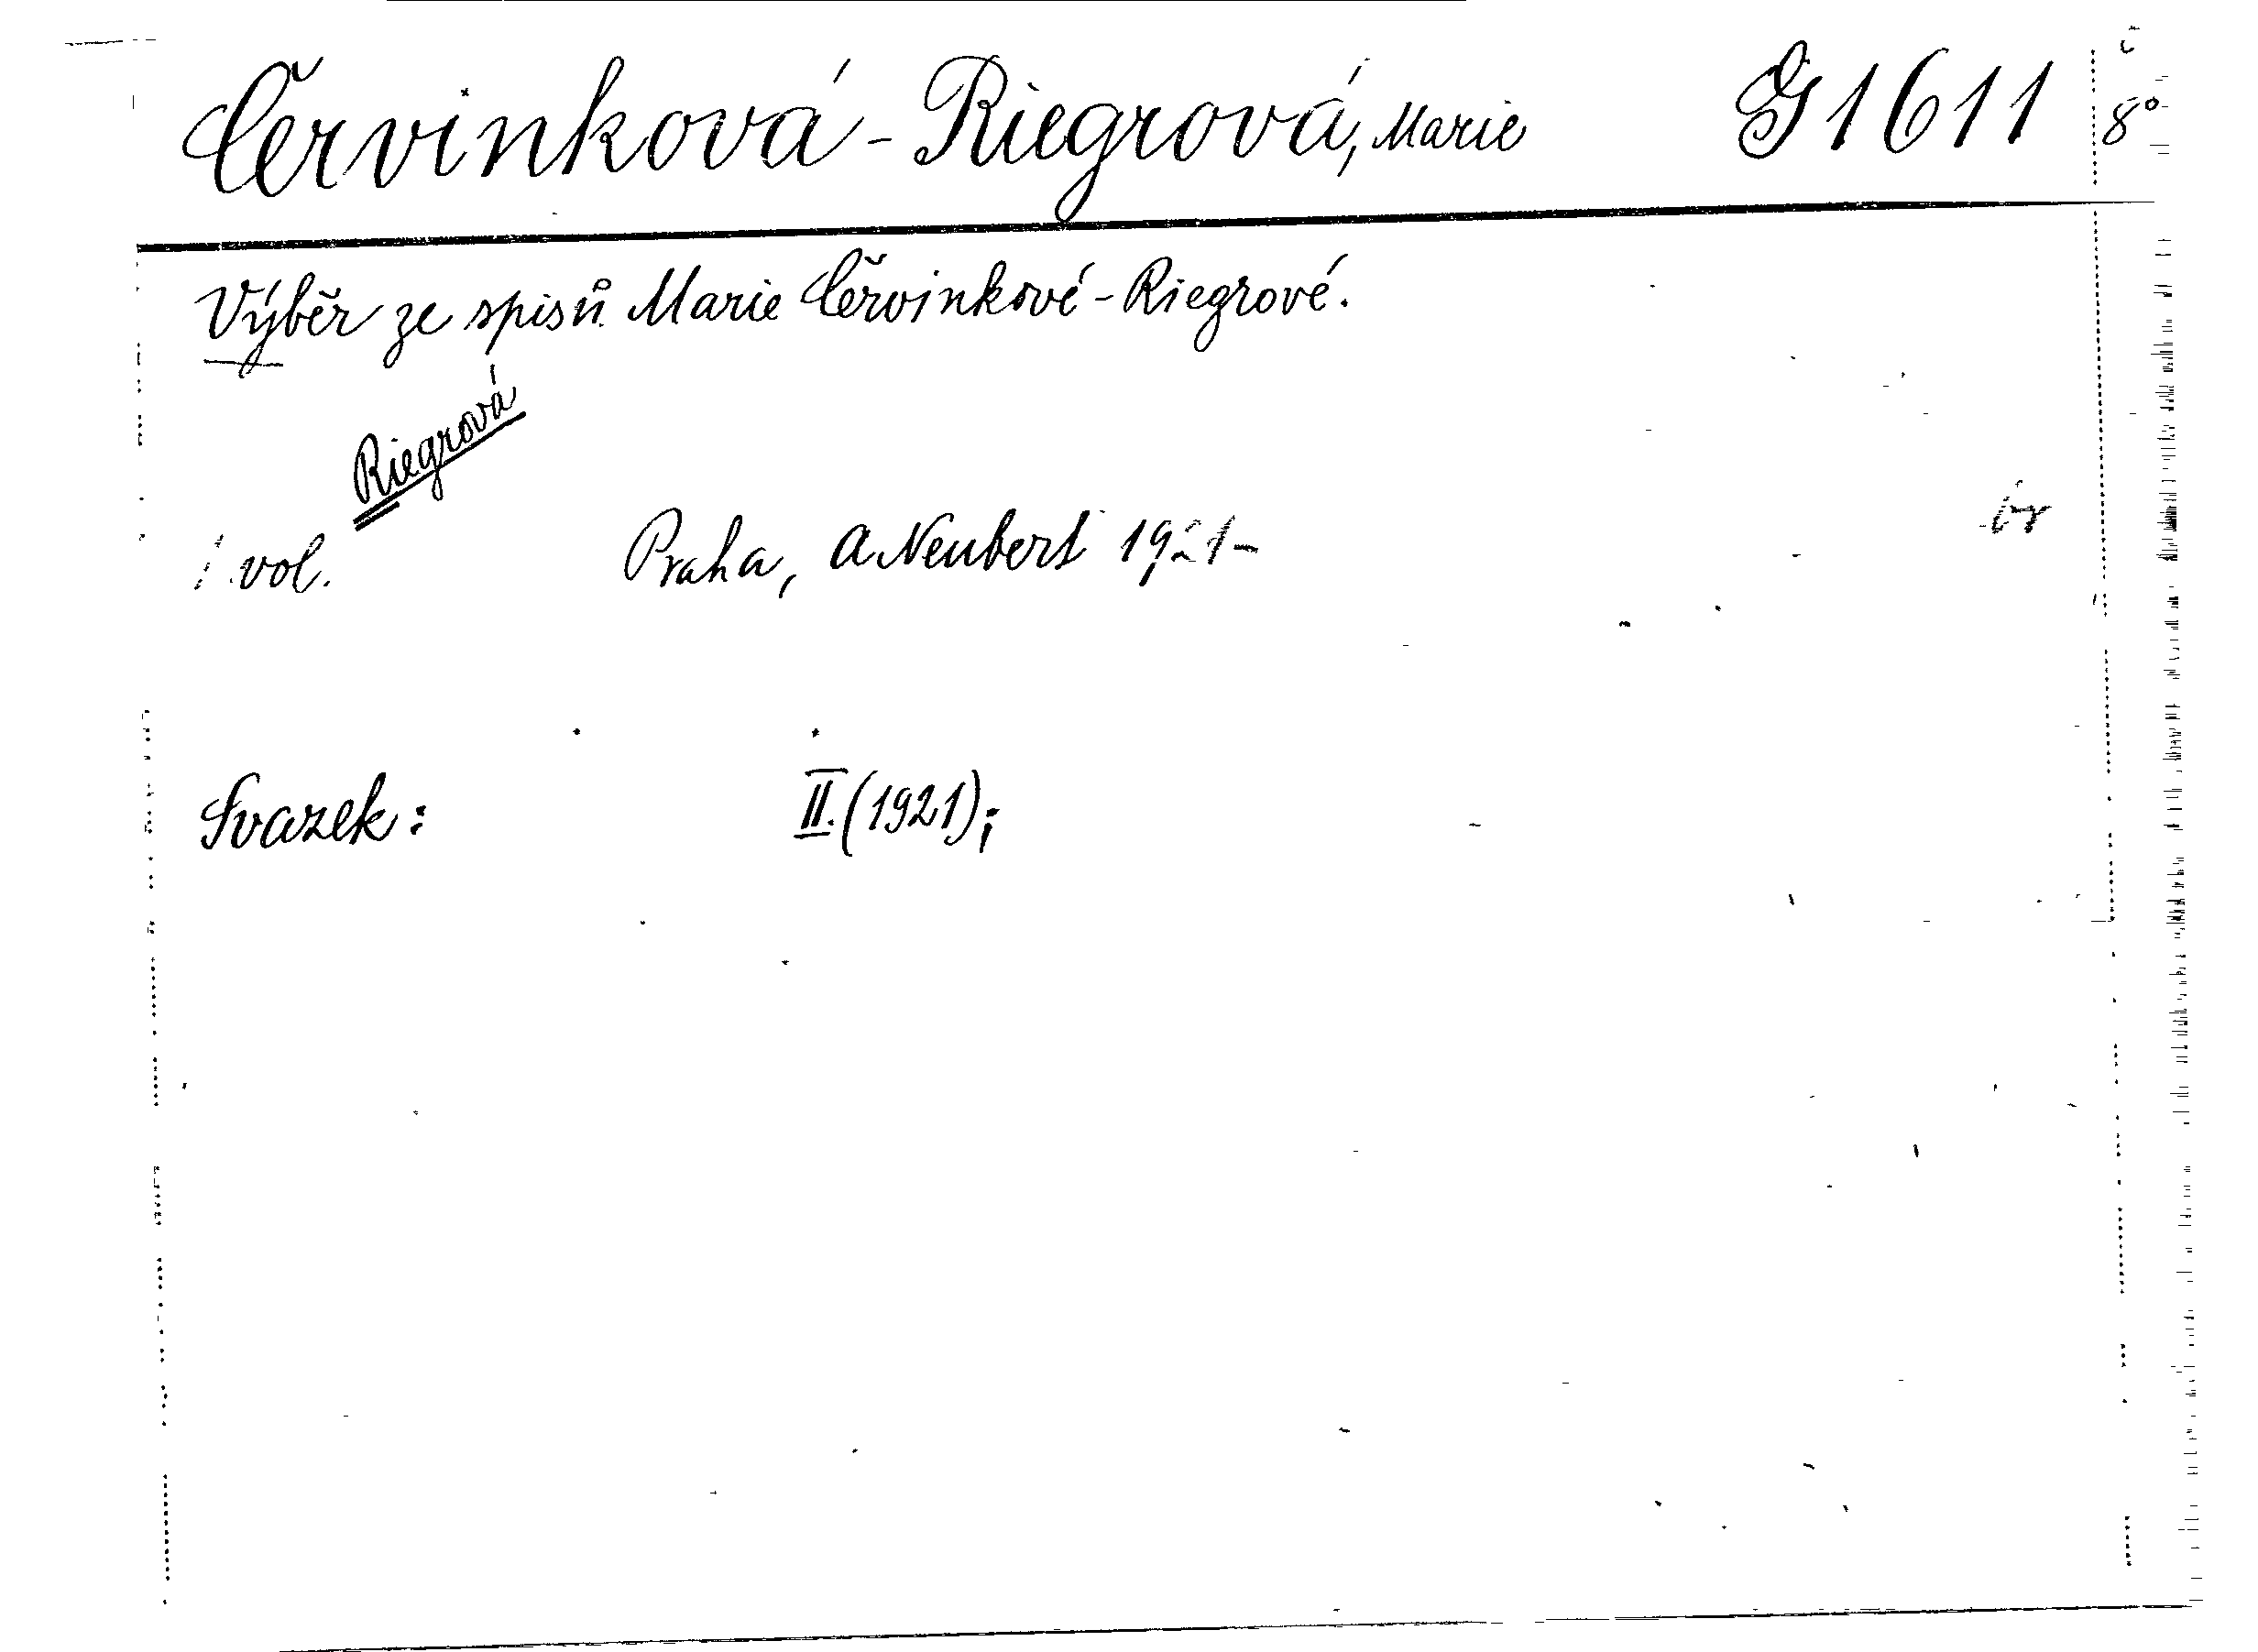 Červinková-Riegrová, Marie G1611 č 8°
Výběr ze spisů Marie Červinkové-Riegrové.
Riegrová
vol. Praha, A Neubert 1921- br
Svazek: II. (1921);